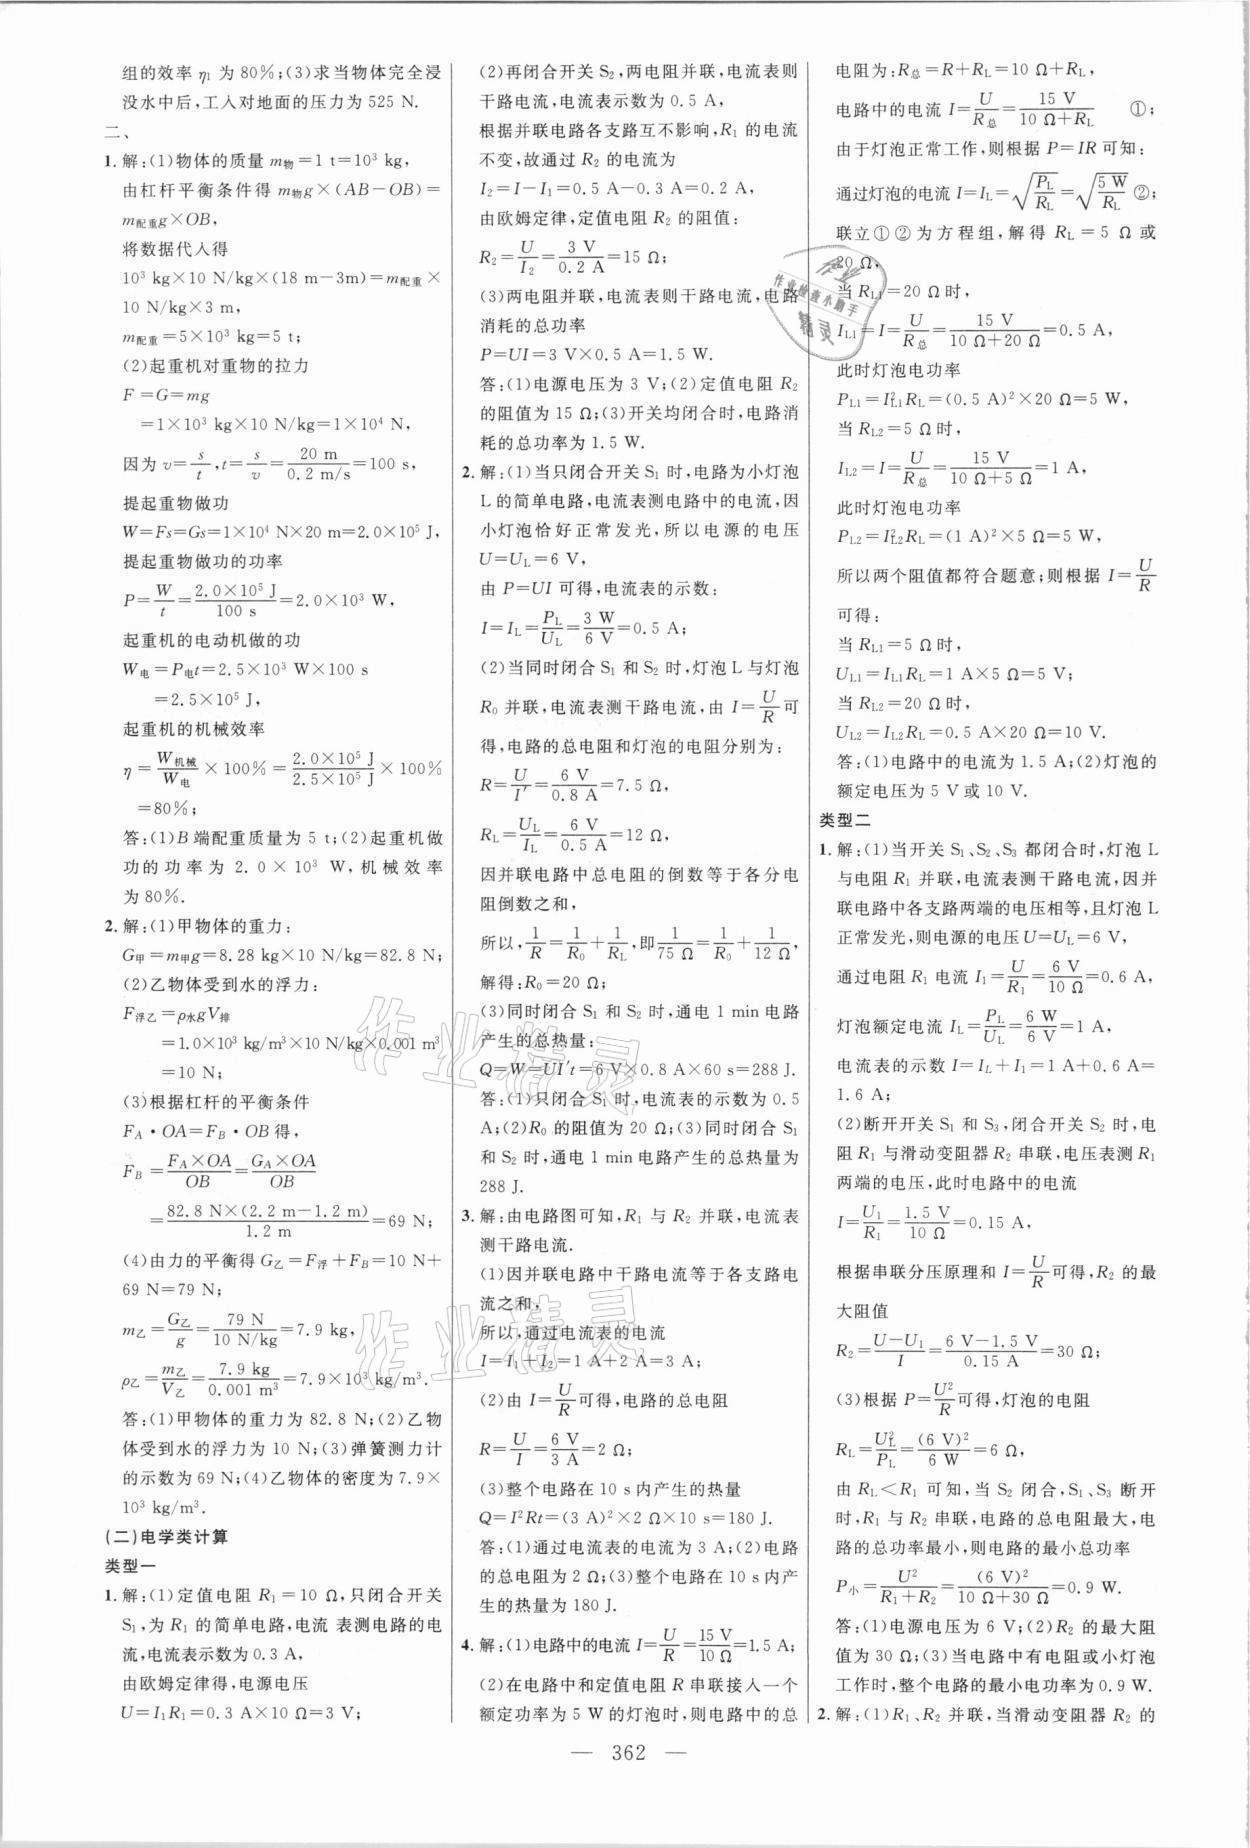 组的效率 η₁ 为 80%;(3)求当物体完全浸
没水中后,工人对地面的压力为 525 N.
二、
1. 解:(1)物体的质量 m物=1 t=10³ kg,
由杠杆平衡条件得 m物g×(AB−OB)=
m配重g×OB,
将数据代入得
10³ kg×10 N/kg×(18 m−3m)=m配重×
10 N/kg×3 m,
m配重=5×10³ kg=5 t;
(2)起重机对重物的拉力
F=G=mg
=1×10³ kg×10 N/kg=1×10⁴ N,
因为 v=s/t,t=s/v=20 m/0.2 m/s=100 s,
提起重物做功
W=Fs=Gs=1×10⁴ N×20 m=2.0×10⁵ J,
提起重物做功的功率
P=W/t=2.0×10⁵ J/100 s=2.0×10³ W,
起重机的电动机做的功
W电=P电t=2.5×10³ W×100 s
=2.5×10⁵ J,
起重机的机械效率
η=W机械/W电×100%=2.0×10⁵ J/2.5×10⁵ J×100%
=80%;
答:(1)B 端配重质量为 5 t;(2)起重机做
功的功率为 2.0×10³ W,机械效率
为 80%.
2. 解:(1)甲物体的重力:
G甲=m甲g=8.28 kg×10 N/kg=82.8 N;
(2)乙物体受到水的浮力:
F浮乙=ρ水gV排
=1.0×10³ kg/m³×10 N/kg×0.001 m³
=10 N;
(3)根据杠杆的平衡条件
F_A·OA=F_B·OB 得,
F_B=F_A×OA/OB=G_A×OA/OB
=82.8 N×(2.2 m−1.2 m)/1.2 m=69 N;
(4)由力的平衡得 G乙=F浮+F_B=10 N+
69 N=79 N,
m乙=G乙/g=79 N/10 N/kg=7.9 kg,
ρ乙=m乙/V乙=7.9 kg/0.001 m³=7.9×10³ kg/m³.
答:(1)甲物体的重力为 82.8 N;(2)乙物
体受到水的浮力为 10 N;(3)弹簧测力计
的示数为 69 N;(4)乙物体的密度为 7.9×
10³ kg/m³.
(二)电学类计算
类型一
1. 解:(1)定值电阻 R₁=10 Ω,只闭合开关
S₁,为 R₁ 的简单电路,电流 表测电路的电
流,电流表示数为 0.3 A,
由欧姆定律得,电源电压
U=I₁R₁=0.3 A×10 Ω=3 V;
(2)再闭合开关 S₂,两电阻并联,电流表则
干路电流,电流表示数为 0.5 A,
根据并联电路各支路互不影响,R₁ 的电流
不变,故通过 R₂ 的电流为
I₂=I−I₁=0.5 A−0.3 A=0.2 A,
由欧姆定律,定值电阻 R₂ 的阻值:
R₂=U/I₂=3 V/0.2 A=15 Ω;
(3)两电阻并联,电流表则干路电流,电路
消耗的总功率
P=UI=3 V×0.5 A=1.5 W.
答:(1)电源电压为 3 V;(2)定值电阻 R₂
的阻值为 15 Ω;(3)开关均闭合时,电路消
耗的总功率为 1.5 W.
2. 解:(1)当只闭合开关 S₁ 时,电路为小灯泡
L 的简单电路,电流表测电路中的电流,因
小灯泡恰好正常发光,所以电源的电压
U=U_L=6 V,
由 P=UI 可得,电流表的示数:
I=I_L=P_L/U_L=3 W/6 V=0.5 A;
(2)当同时闭合 S₁ 和 S₂ 时,灯泡 L 与灯泡
R₀ 并联,电流表测干路电流,由 I=U/R 可
得,电路的总电阻和灯泡的电阻分别为:
R=U/I′=6 V/0.8 A=7.5 Ω,
R_L=U_L/I_L=6 V/0.5 A=12 Ω,
因并联电路中总电阻的倒数等于各分电
阻倒数之和,
所以,1/R=1/R₀+1/R_L,即1/75 Ω=1/R₀+1/12 Ω,
解得:R₀=20 Ω;
(3)同时闭合 S₁ 和 S₂ 时,通电 1 min 电路
产生的总热量:
Q=W=UI′t=6 V×0.8 A×60 s=288 J.
答:(1)只闭合 S₁ 时,电流表的示数为 0.5
A;(2)R₀ 的阻值为 20 Ω;(3)同时闭合 S₁
和 S₂ 时,通电 1 min 电路产生的总热量为
288 J.
3. 解:由电路图可知,R₁ 与 R₂ 并联,电流表
测干路电流.
(1)因并联电路中干路电流等于各支路电
流之和,
所以,通过电流表的电流
I=I₁+I₂=1 A+2 A=3 A;
(2)由 I=U/R可得,电路的总电阻
R=U/I=6 V/3 A=2 Ω;
(3)整个电路在 10 s内产生的热量
Q=I²Rt=(3 A)²×2 Ω×10 s=180 J.
答:(1)通过电流表的电流为 3 A;(2)电路
的总电阻为 2 Ω;(3)整个电路在 10 s内产
生的热量为 180 J.
4. 解:(1)电路中的电流 I=U/R=15 V/10 Ω=1.5 A;
(2)在电路中和定值电阻 R 串联接入一个
额定功率为 5 W 的灯泡时,则电路中的总
电阻为:R总=R+R_L=10 Ω+R_L,
电路中的电流 I=U/R总=15 V/10 Ω+R_L ①;
由于灯泡正常工作,则根据 P=IR 可知:
通过灯泡的电流 I=I_L=√(P_L/R_L)=√(5 W/R_L) ②;
联立①②为方程组,解得 R_L=5 Ω 或
20 Ω,
当 R_L1=20 Ω时,
I_L1=I=U/R总=15 V/10 Ω+20 Ω=0.5 A,
此时灯泡电功率
P_L1=I²_L1R_L=(0.5 A)²×20 Ω=5 W,
当 R_L2=5 Ω时,
I_L2=I=U/R总=15 V/10 Ω+5 Ω=1 A,
此时灯泡电功率
P_L2=I²_L2R_L=(1 A)²×5 Ω=5 W,
所以两个阻值都符合题意;则根据 I=U/R
可得:
当 R_L1=5 Ω时,
U_L1=I_L1R_L=1 A×5 Ω=5 V;
当 R_L2=20 Ω时,
U_L2=I_L2R_L=0.5 A×20 Ω=10 V.
答:(1)电路中的电流为 1.5 A;(2)灯泡的
额定电压为 5 V或 10 V.
类型二
1. 解:(1)当开关 S₁、S₂、S₃ 都闭合时,灯泡 L
与电阻 R₁ 并联,电流表测干路电流,因并
联电路中各支路两端的电压相等,且灯泡 L
正常发光,则电源的电压 U=U_L=6 V,
通过电阻 R₁ 电流 I₁=U/R₁=6 V/10 Ω=0.6 A,
灯泡额定电流 I_L=P_L/U_L=6 W/6 V=1 A,
电流表的示数 I=I_L+I₁=1 A+0.6 A=
1.6 A;
(2)断开开关 S₁ 和 S₃,闭合开关 S₂ 时,电
阻 R₁ 与滑动变阻器 R₂ 串联,电压表测 R₁
两端的电压,此时电路中的电流
I=U₁/R₁=1.5 V/10 Ω=0.15 A,
根据串联分压原理和 I=U/R可得,R₂ 的最
大阻值
R₂=U−U₁/I=6 V−1.5 V/0.15 A=30 Ω;
(3)根据 P=U²/R可得,灯泡的电阻
R_L=U²_L/P_L=(6 V)²/6 W=6 Ω,
由 R_L<R₁ 可知,当 S₂ 闭合,S₁、S₃ 断开
时,R₁ 与 R₂ 串联,电路的总电阻最大,电
路的总功率最小,则电路的最小总功率
P小=U²/R₁+R₂=(6 V)²/10 Ω+30 Ω=0.9 W.
答:(1)电源电压为 6 V;(2)R₂ 的最大阻
值为 30 Ω;(3)当电路中有电阻或小灯泡
工作时,整个电路的最小电功率为 0.9 W.
2. 解:(1)R₁、R₂ 并联,当滑动变阻器 R₂ 的
— 362 —
作业
作业检查小助手
精灵
作业精灵
作业精灵